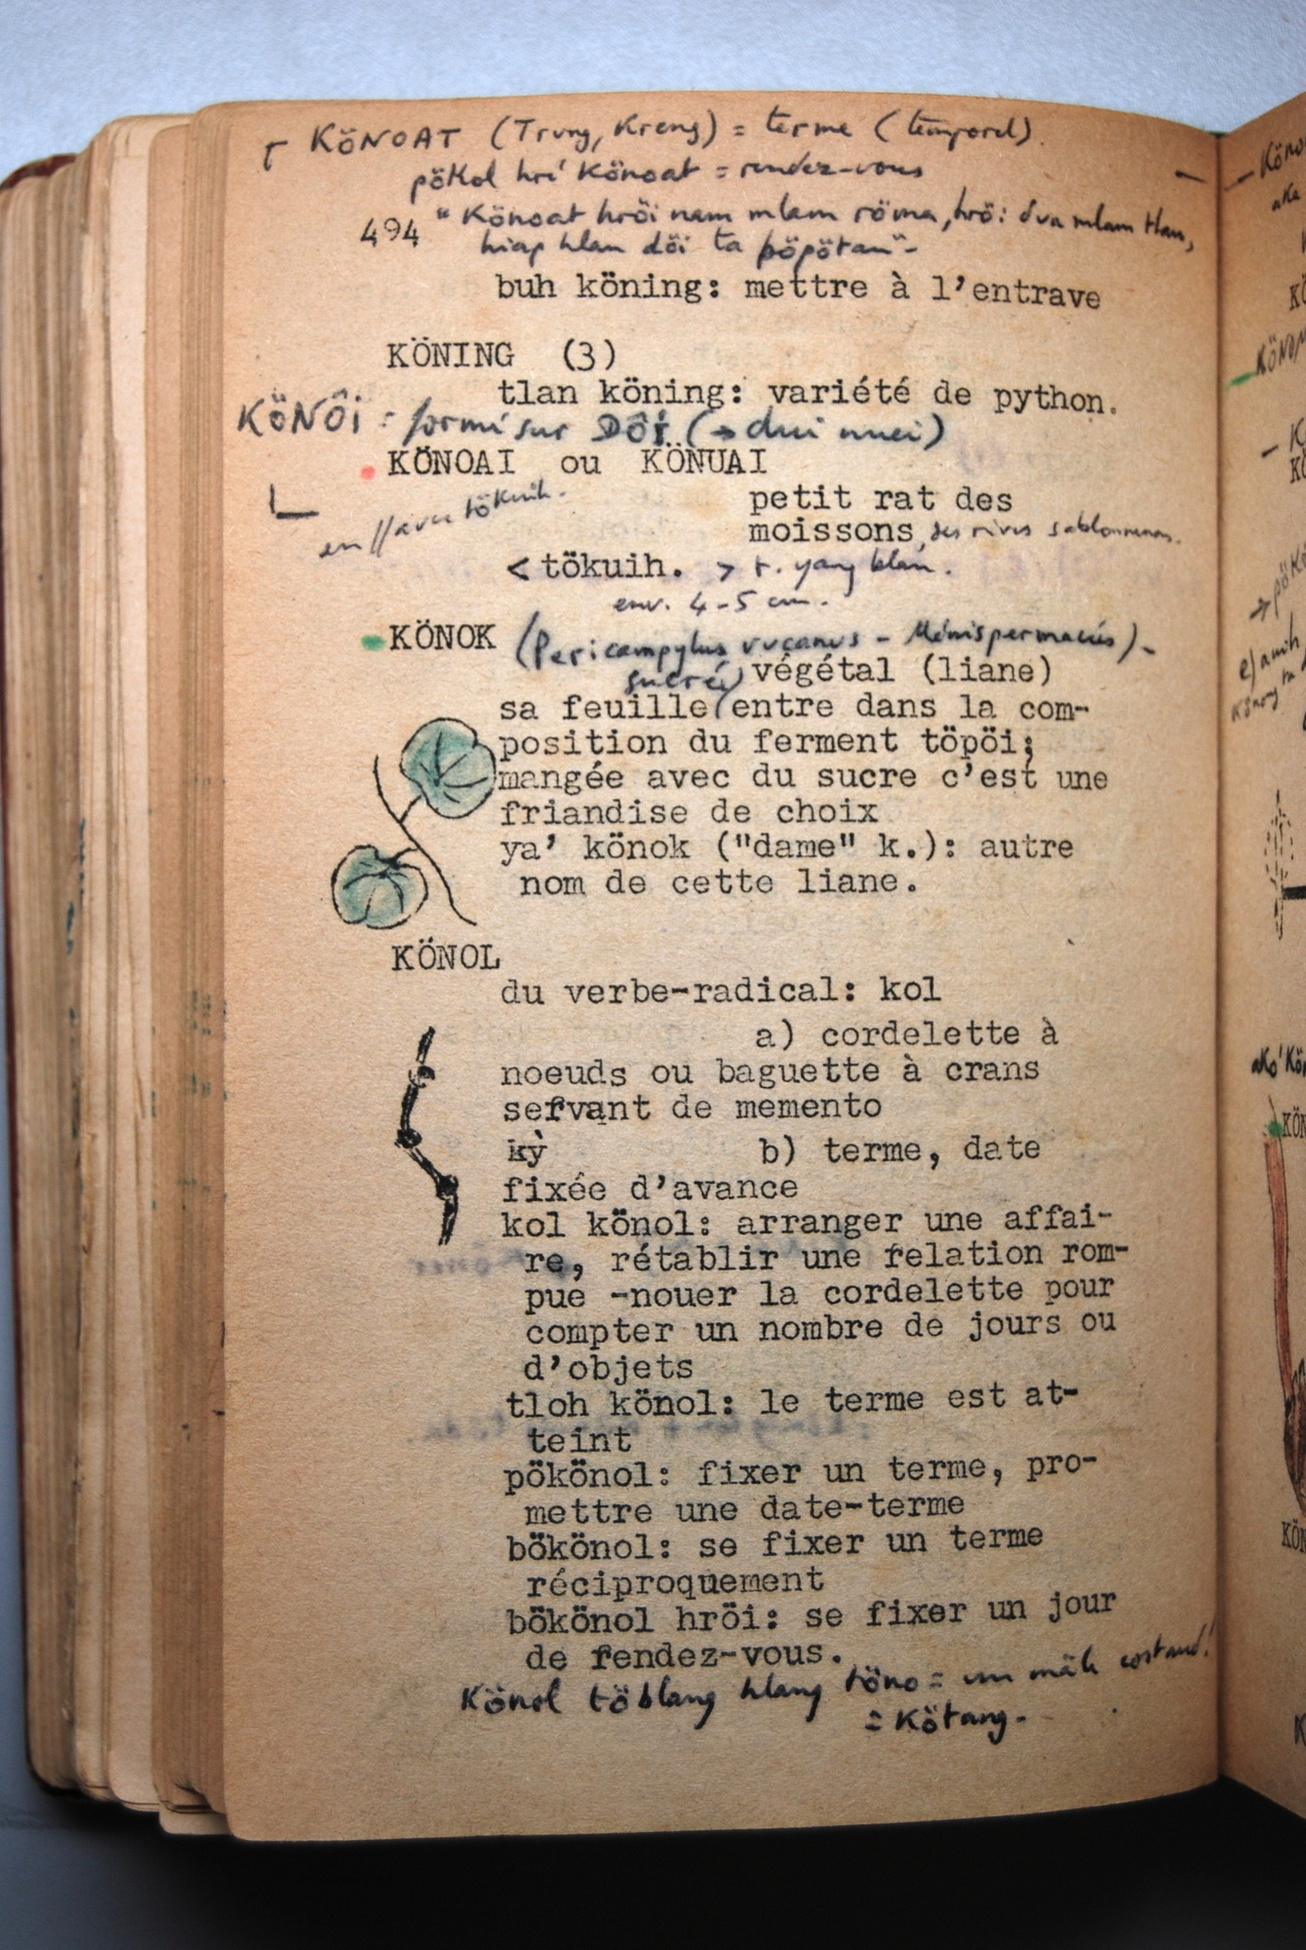 KÖNOAT (Trung, Kreng) = terme (temporel).
pökol hrí könoat = rendez-vous
494 "Könoat hröi nam mlam röma, hröi dua mlam tlan,
hiap hlan döi ta pöpötan"-
buh köning: mettre à l'entrave
KÖNING (3)
tlan köning: variété de python.
KÖNÔI : formé sur DÔI (→ dui nuei)
KÖNOAI ou KÖNUAI
petit rat des
moissons, des rives sablonneuses.
en // avec tökuih.
< tökuih. > t. yang blan.
env. 4-5 cm.
KÖNOK (Pericampylus - Ménispermacées).-
végétal (liane)
sucrée
sa feuille entre dans la com-
position du ferment töpöi;
mangée avec du sucre c'est une
friandise de choix
ya' könok ("dame" k.): autre
nom de cette liane.
KÖNOL
du verbe-radical: kol
a) cordelette à
noeuds ou baguette à crans
servant de memento
kỳ b) terme, date
fixée d'avance
kol könol: arranger une affai-
re, rétablir une relation rom-
pue -nouer la cordelette pour
compter un nombre de jours ou
d'objets
tloh könol: le terme est at-
teint
pökönol: fixer un terme, pro-
mettre une date-terme
bökönol: se fixer un terme
réciproquement
bökönol hröi: se fixer un jour
de rendez-vous.
Könol töblang hlang töno = un mâle costaud!
= Kötang-